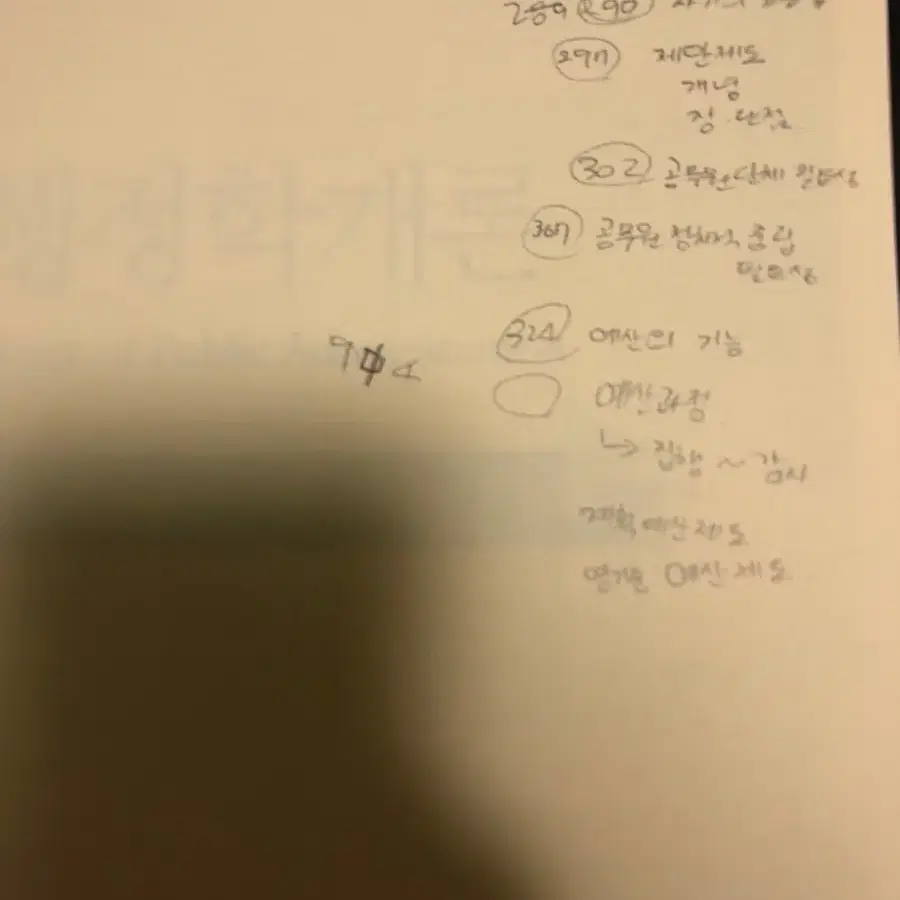 289 290
297 제안제도
개념
장.단점
302 공무원단체 필요성
307 공무원 정치적 중립
필요성
324 예산의 기능
예산과정
↳ 집행 ~ 감사
계획예산제도
영기준 예산제도
행정학개론